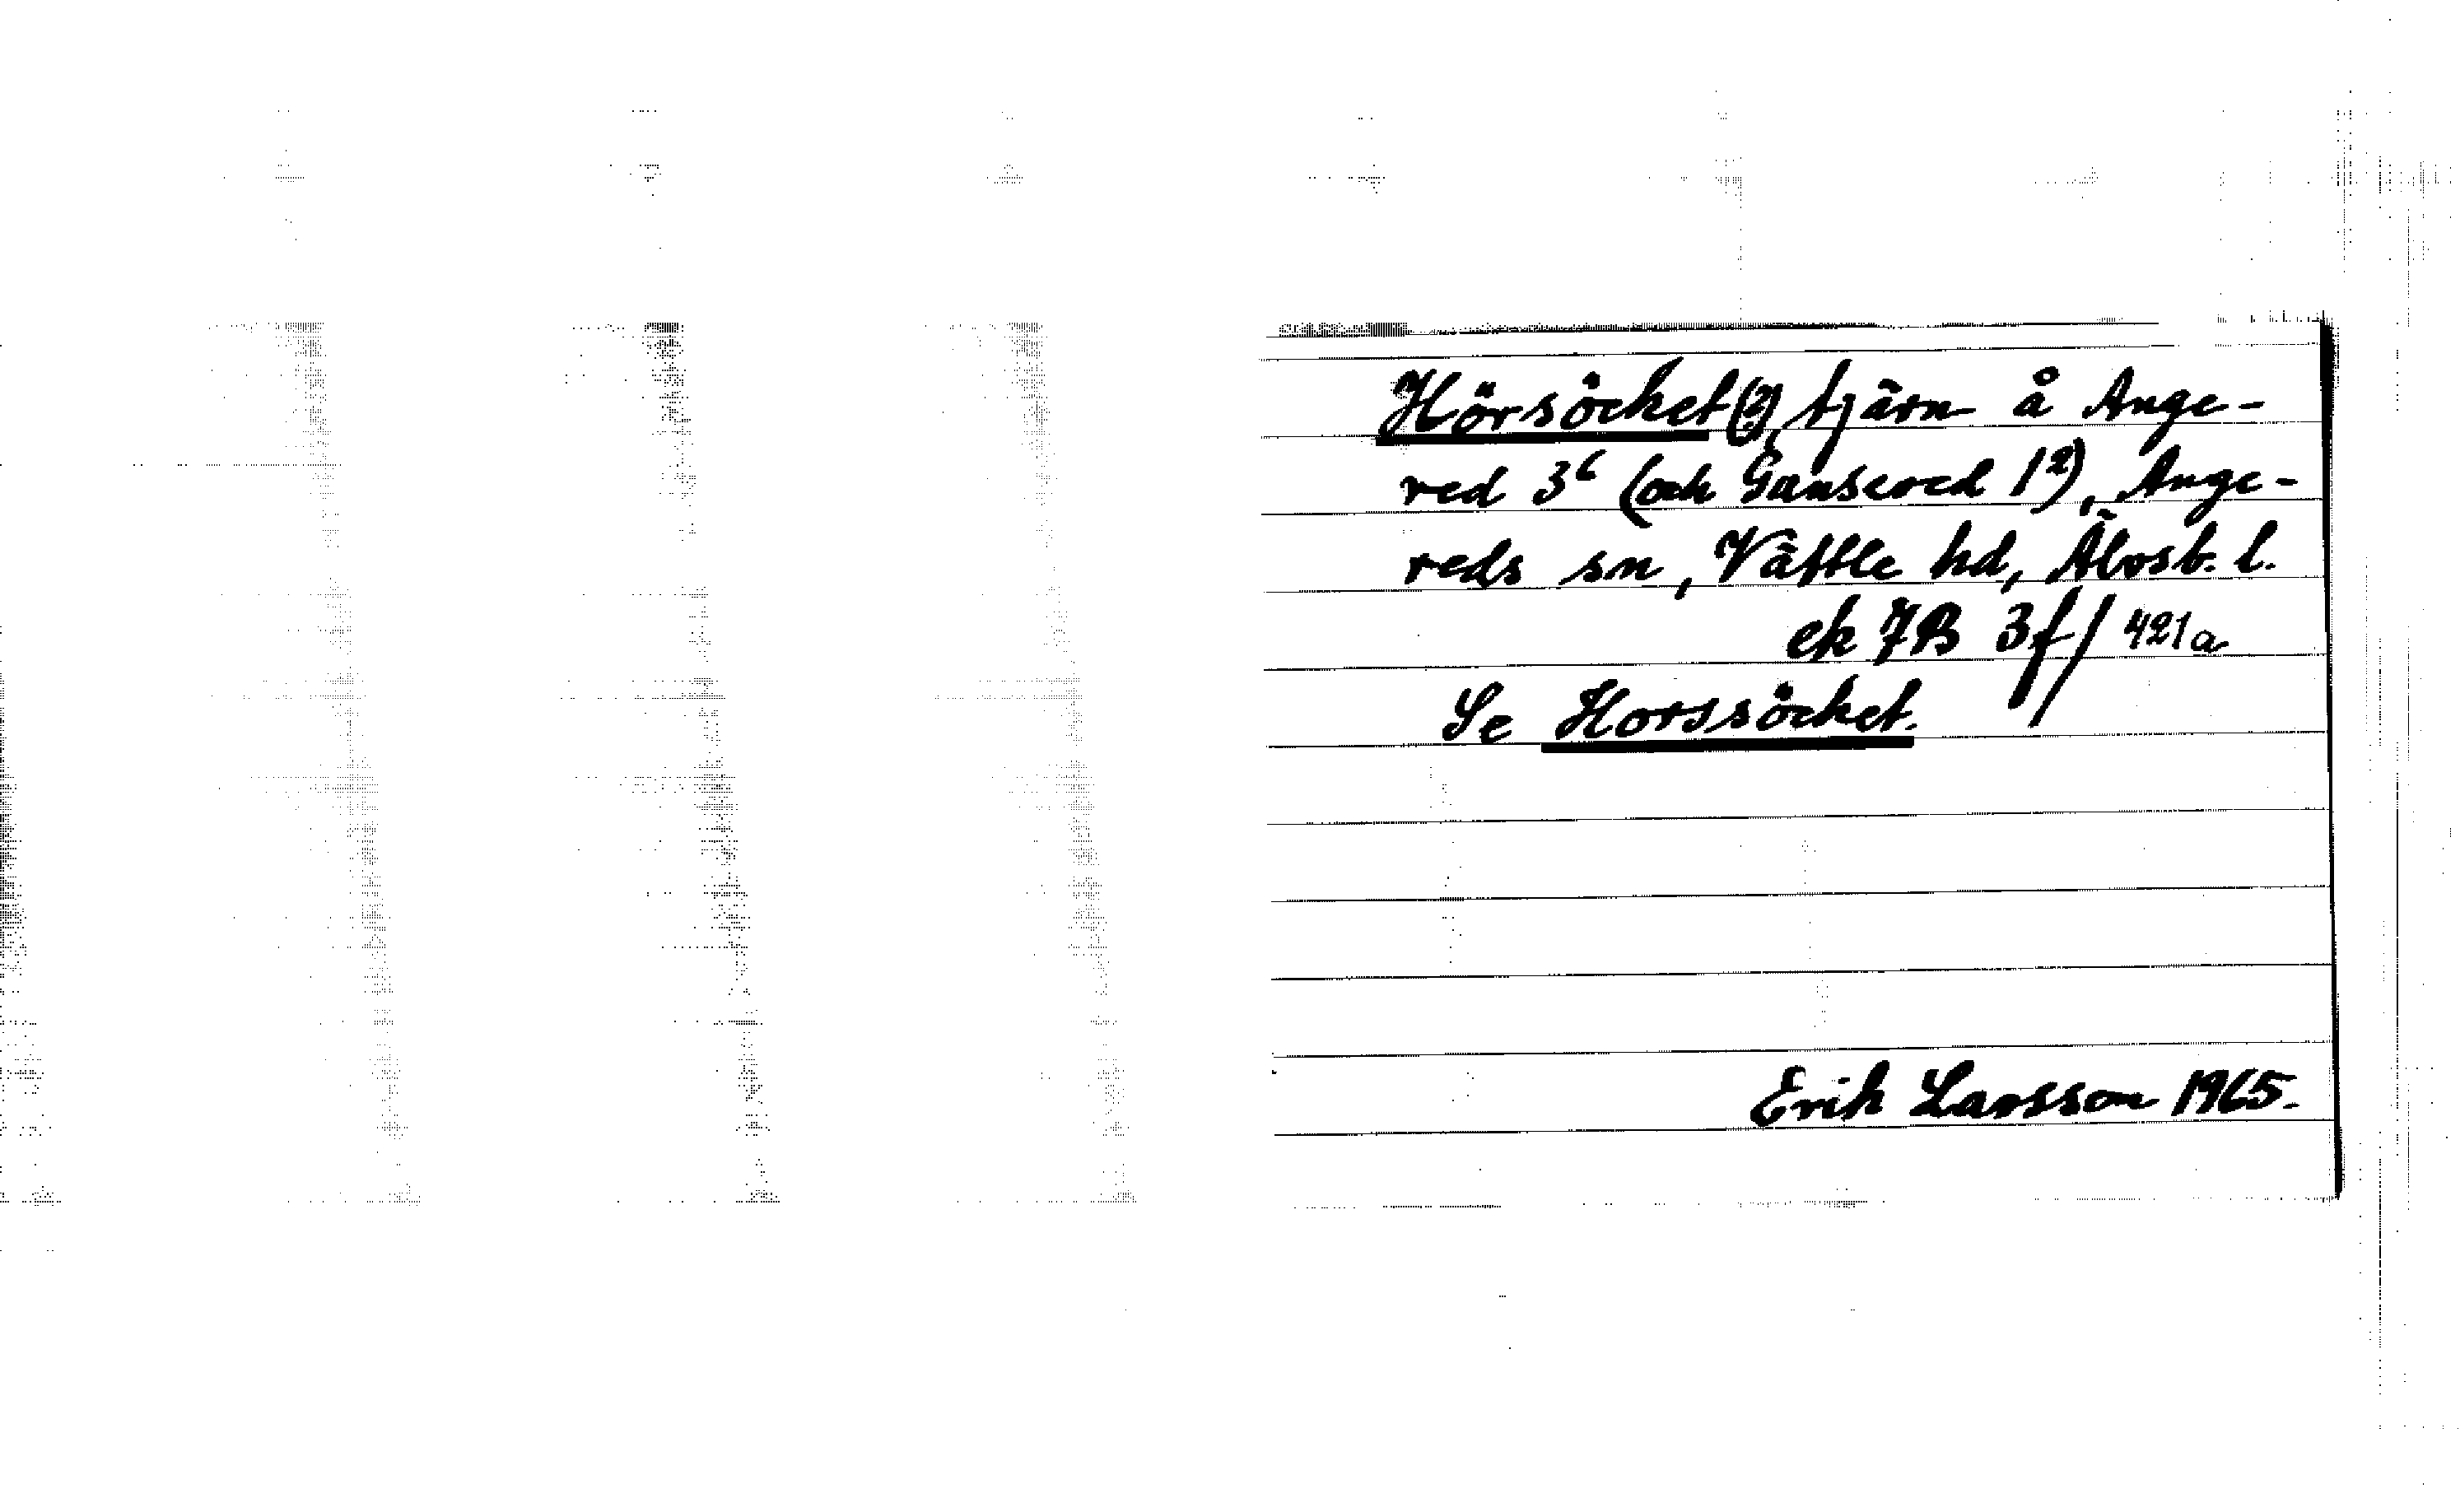 Hörsöcket (?), tjärn å Ange-
red 3⁶ (och Gunsered 1²), Ange-
reds sn, Vättle hd, Älvsb. l.
ek 7B 3f/421a
Se Horssöcket.
Erik Larsson 1965.